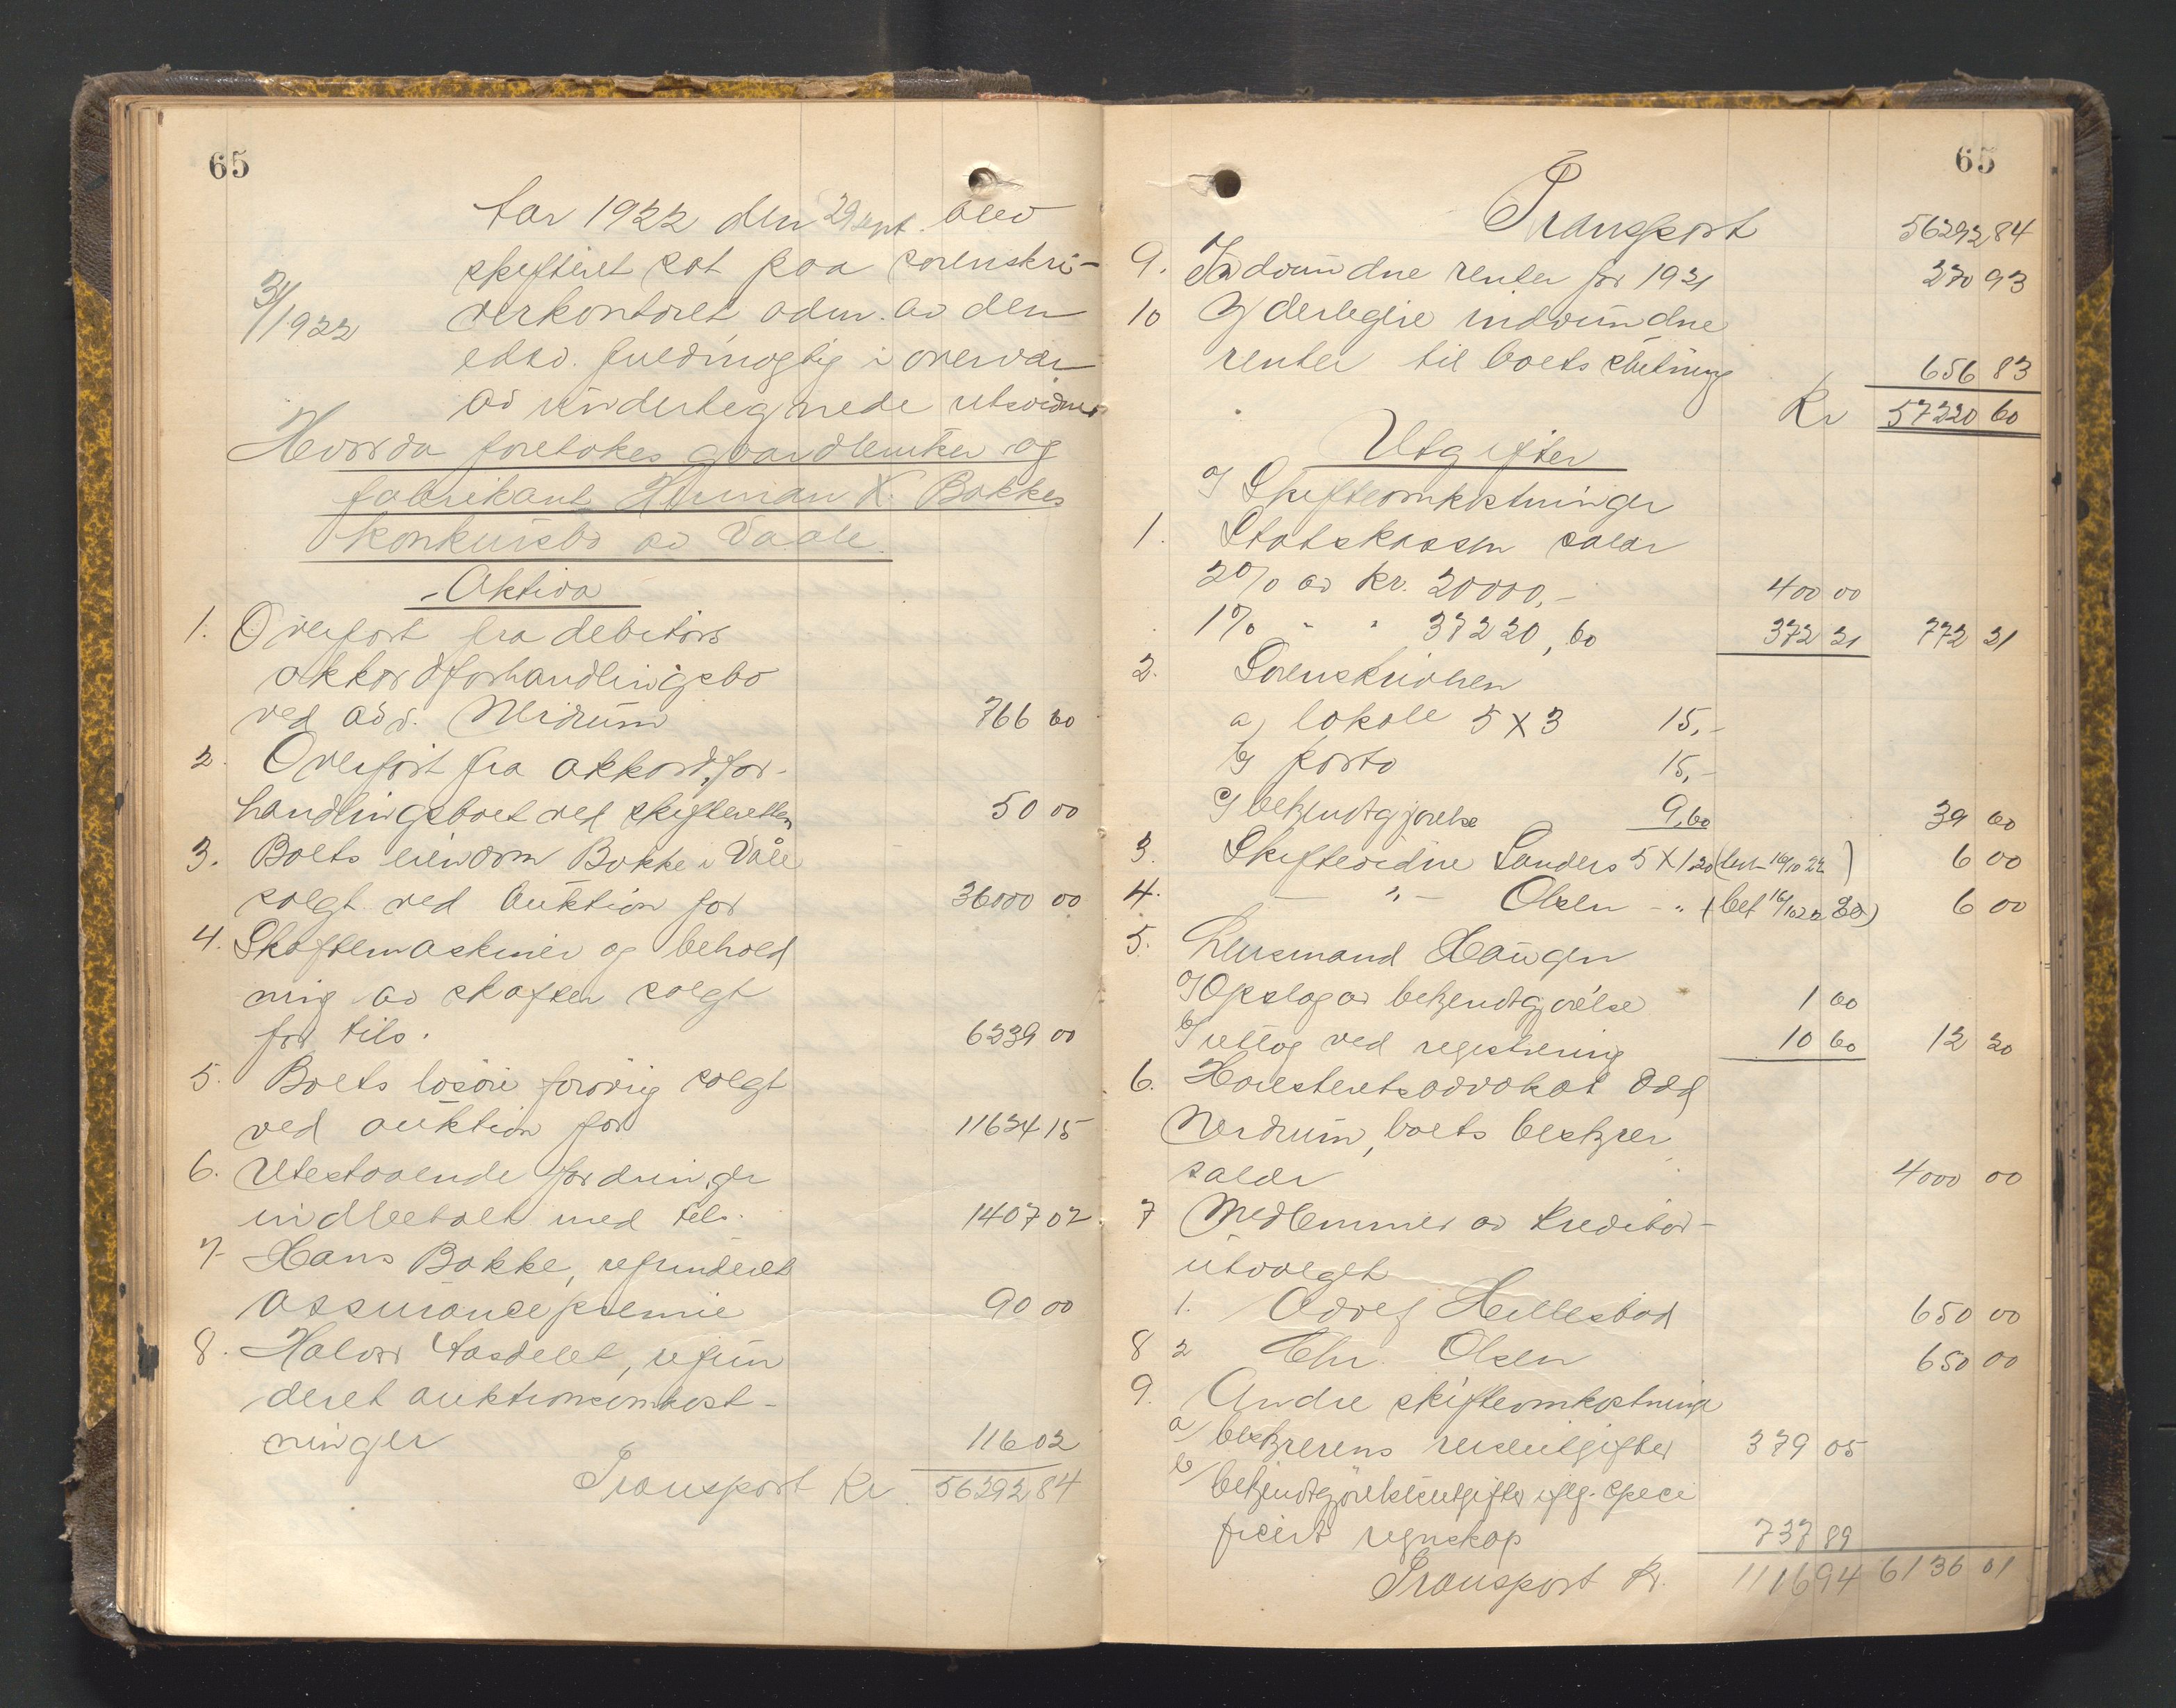 65
Aar 1922 den 29 sept. blev
skifteret sat paa sorenskri-
verkontoret adm. av den
edsv. fuldmægtig i overvær
av undertegnede retsvidner
3/1922
Hvorda foretokes gaardbruker og
fabrikant Herman K. Bakkes
konkursbo av Vaale.
Aktiva
1. Overført fra debitors
akkordforhandlingsbo
ved adv. Nerdrum 766 60
2. Overført fra akkordfor-
handlingsboet ved skifteretten 50 00
3. Boets eiendom Bakke i Våle
solgt ved auktion for 36000 00
4. Skaftemaskiner og behold
ning av skafter solgt
for tils. 6239 00
5. Boets løsøre forøvrig solgt
ved auktion for 11624 15
6. Utestaaende fordringer
indbetalt med tils. 1407 07
7. Hans Bakke, refunderet
assurancepremie 90 00
8. Halvor Aasdelet, refun
deret auktionsomkost-
ninger 116 02
Transport Kr 56292 84
65
Transport 56292 84
9. Indvundne renter for 1921 270 93
10 Yderligere indvundne
renter til boets slutning 656 83
Kr 57220 60
Utgifter
a) Skifteomkostninger
1. Statskassen salær
2% av kr. 20000,- 400 00
1% " " 37220,60 372 21 772 21
2. Sorenskriveren
a) lokale 5 X 3 15,-
b) porto 15,-
c) bekjendtgjørelse 9,60 39 60
3. Skiftevidne Sanders 5 X 1,20 (bet 16/10 22) 6 00
4. - " - Olsen - " (bet 16/10 22) 6 00
5. Lensmand Haugen
a) Opslag av bekjendtgjørelse 1 60
b) uttog ved registrering 10 60 12 20
6. Høiesteretsadvokat Odd
Nerdrum, boets bestyrer,
salær 4000 00
7 Medlemmer av kreditor-
utvalget
1. Advof Hellesbød 650 00
8 2 Chr. Olsen 650 00
9. Andre skifteomkostninger
a) bestyrerens reiseutgifter 379 05
b) bekjendtgjørelsesutgifter iflg. speci
ficert regnskap 737 89
Transport Kr. 1116 94 6136 01